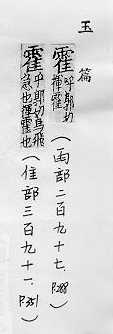 玉篇
霍 呼郭切揮霍 (雨部二百九十七. P.288)
霍 呼郭切鳥飛急也揮霍也 (隹部三百九十一. P.351)